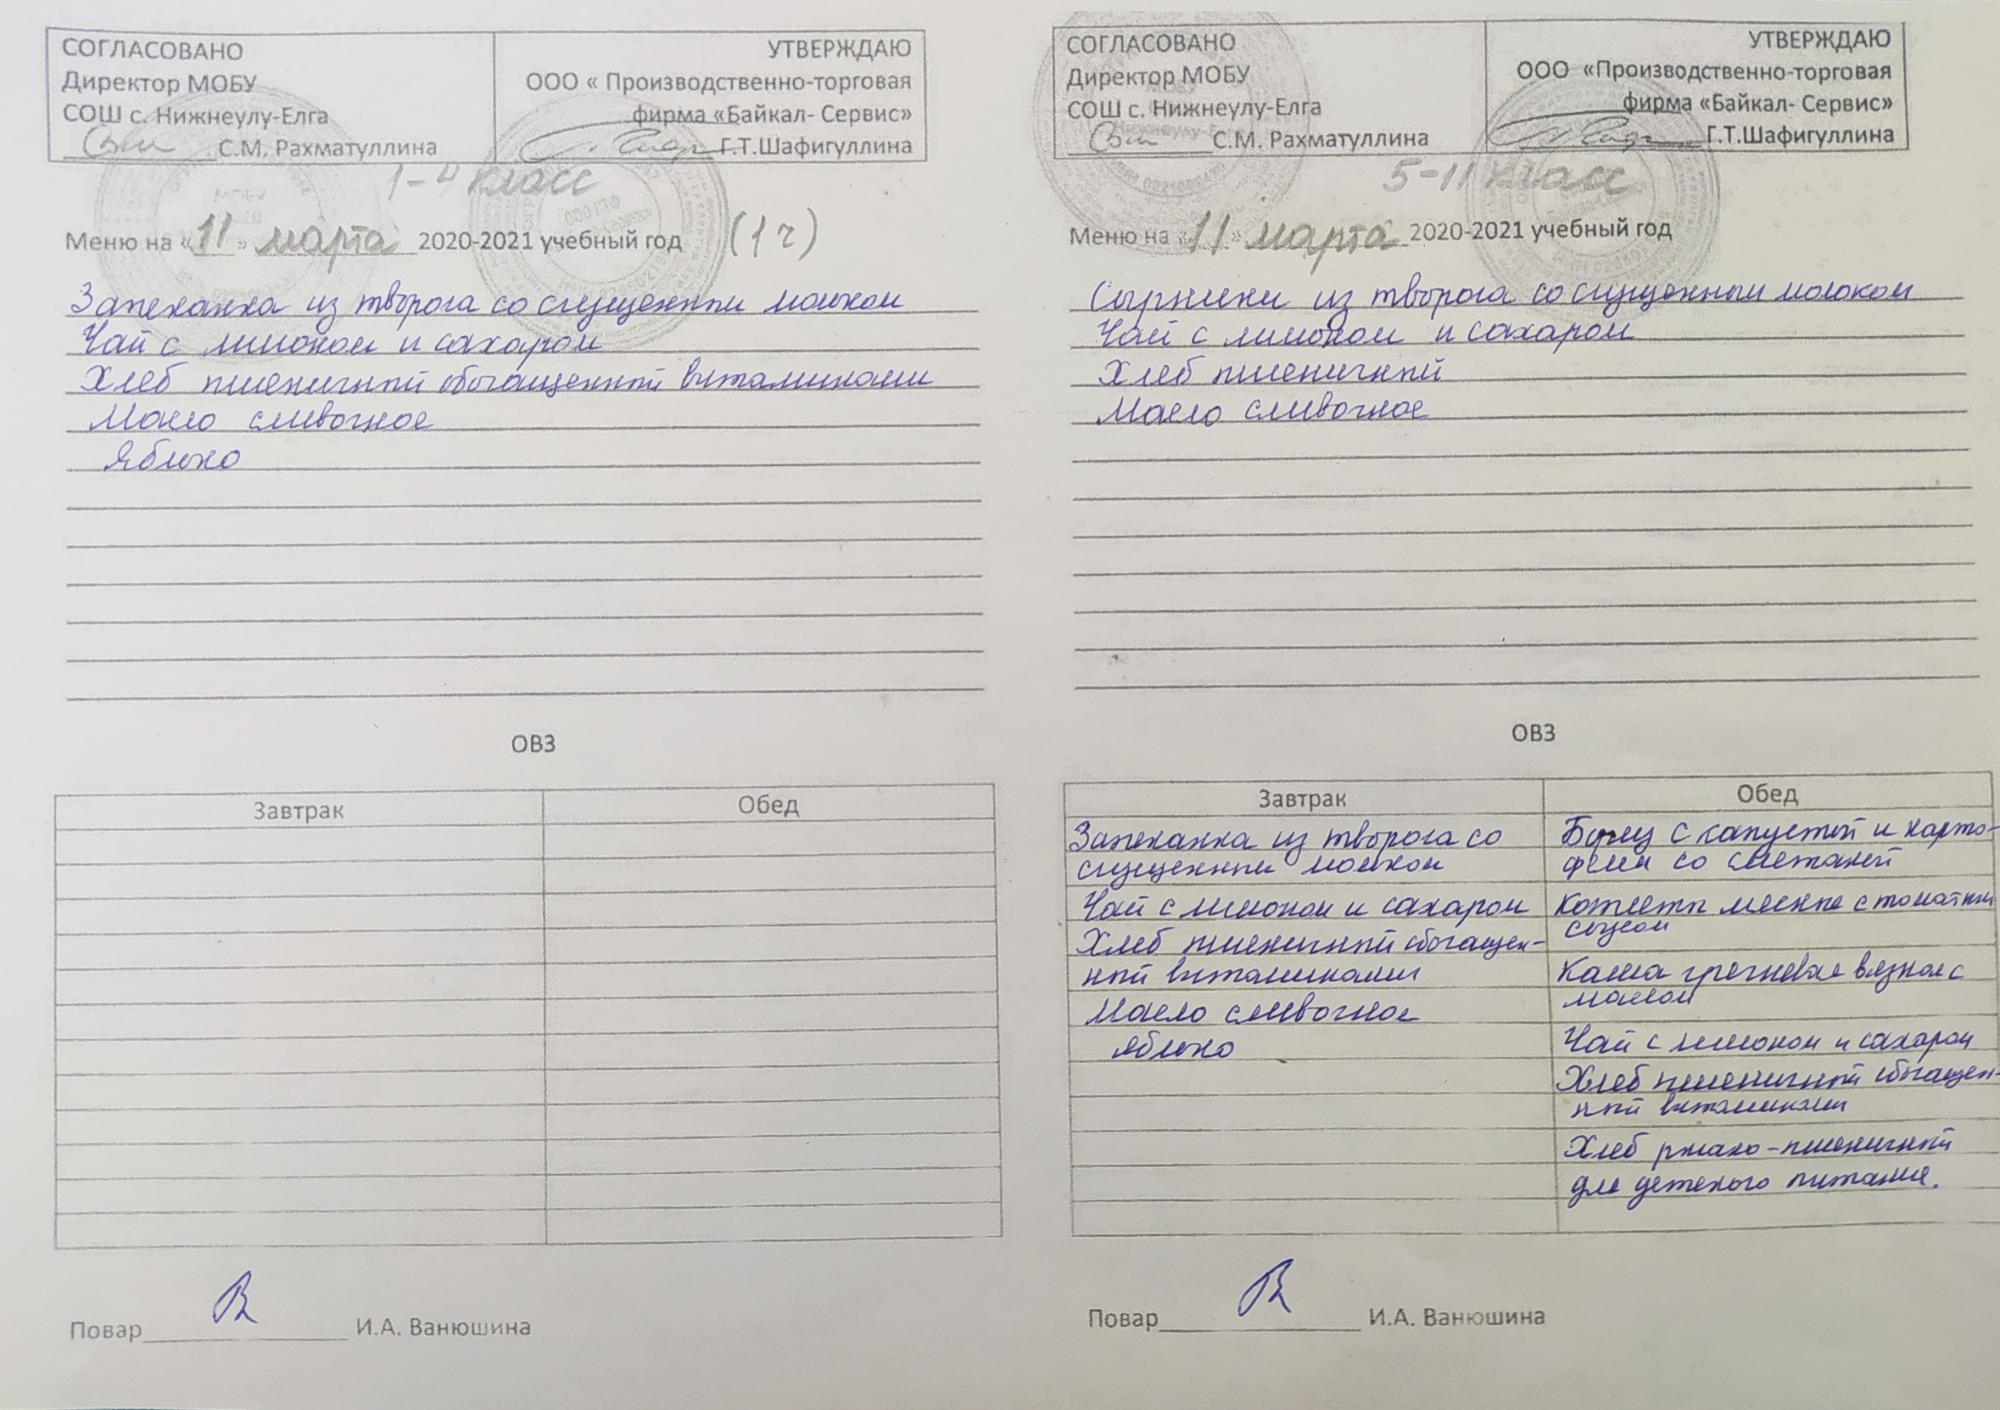 СОГЛАСОВАНО
Директор МОБУ
СОШ с. Нижнеулу-Елга
С.М. Рахматуллина
УТВЕРЖДАЮ
ООО « Производственно-торговая
фирма «Байкал- Сервис»
Г.Т.Шафигуллина
1-4 класс
Меню на «11» марта 2020-2021 учебный год (1 г)
Запеканка из творога со сгущенным молоком
Чай с лимоном и сахаром
Хлеб пшеничный обогащенный витаминами
Масло сливочное
Яблоко
ОВЗ
Завтрак Обед
Повар И.А. Ванюшина
СОГЛАСОВАНО
Директор МОБУ
СОШ с. Нижнеулу-Елга
С.М. Рахматуллина
УТВЕРЖДАЮ
ООО «Производственно-торговая
фирма «Байкал- Сервис»
Г.Т.Шафигуллина
5-11 класс
Меню на «11» марта 2020-2021 учебный год
Сырники из творога со сгущенным молоком
Чай с лимоном и сахаром
Хлеб пшеничный
Масло сливочное
ОВЗ
Завтрак
Запеканка из творога со
сгущенным молоком
Чай с лимоном и сахаром
Хлеб пшеничный обогащен-
ный витаминами
Масло сливочное
яблоко
Обед
Борщ с капустой и карто-
фелем со сметаной
Котлеты мясные с томатным
соусом
Каша гречневая вязкая с
маслом
Чай с лимоном и сахаром
Хлеб пшеничный обогащен-
ный витаминами
Хлеб ржано-пшеничный
для детского питания.
Повар И.А. Ванюшина